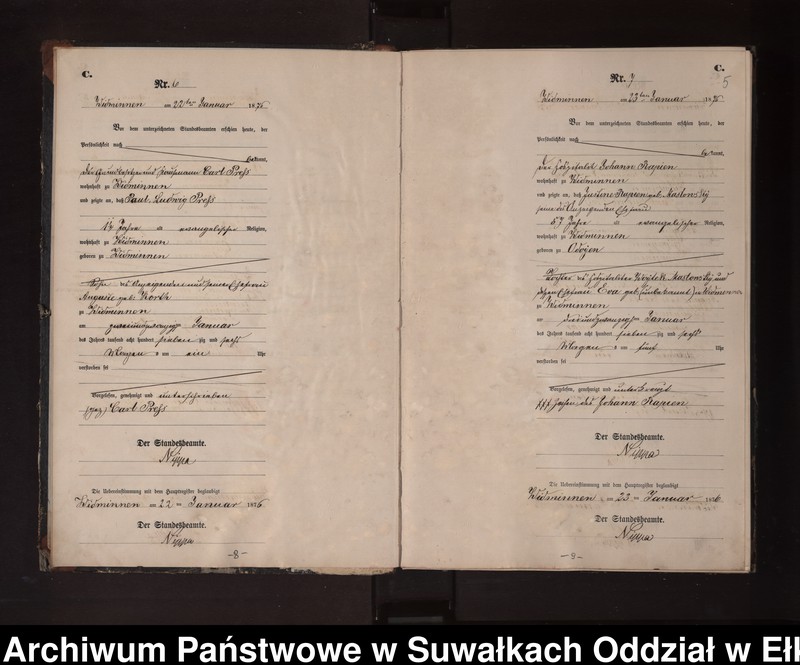 C.
Nr. 6
Widminnen am 22ten Januar 1876
Vor dem unterzeichneten Standesbeamten erschien heute, der
Persönlichkeit nach
kannt,
Carl Press
wohnhaft zu Widminnen
und zeigte an, daß Paul Ludwig Press
Jahre evangelischer Religion,
wohnhaft zu Widminnen
geboren zu Widminnen
Sohn des Anzeigenden und seiner Ehefrau
Auguste geb.
zu Widminnen
am zweiundzwanzigsten Januar
des Jahres tausend acht hundert sieben zig und sechs
Morgens um ein Uhr
verstorben sei
Vorgelesen, genehmigt und unterschrieben
(gez) Carl Press
Der Standesbeamte.
Nippa
Die Uebereinstimmung mit dem Hauptregister beglaubigt
Widminnen am 22ten Januar 1876
Der Standesbeamte.
Nippa
-8-
C.
5
Nr. 7
Widminnen am 23ten Januar 1876
Vor dem unterzeichneten Standesbeamten erschien heute, der
Persönlichkeit nach
kannt,
der Johann Rapien
wohnhaft zu Widminnen
und zeigte an, daß Justine Rapien geb.
57 Jahre evangelischer Religion,
wohnhaft zu Widminnen
geboren zu
Tochter des und
Ehefrau Eva geb. (unbekannt) in Widminnen
zu Widminnen
am dreiundzwanzigsten Januar
des Jahres tausend acht hundert sieben zig und sechs
Morgens um fünf Uhr
verstorben sei
Vorgelesen, genehmigt und
††† Zeichen des Johann Rapien
Der Standesbeamte.
Nippa
Die Uebereinstimmung mit dem Hauptregister beglaubigt
Widminnen am 23ten Januar 1876
Der Standesbeamte.
Nippa
-9-
Archiwum Państwowe w Suwałkach Oddział w Eł